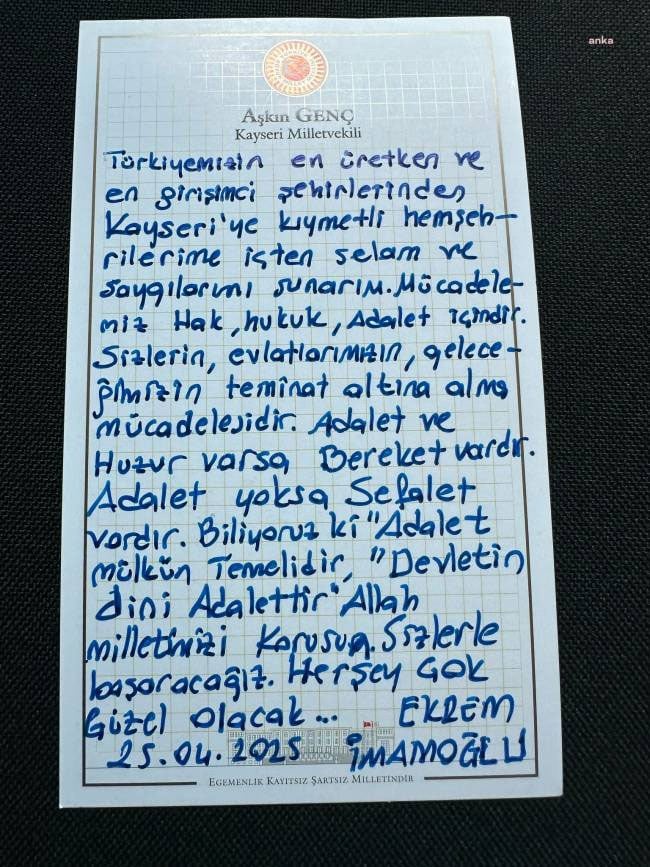 anka
Aşkın GENÇ
Kayseri Milletvekili
Türkiyemizin en üretken ve
en girişimci şehirlerinden
Kayseri'ye kıymetli hemşeh-
rilerime içten selam ve
saygılarımı sunarım. Mücadele-
miz Hak, hukuk, Adalet içindir.
Sizlerin, evlatlarımızın, gelece-
ğimizin teminat altına alma
mücadelesidir. Adalet ve
Huzur varsa Bereket vardır.
Adalet yoksa Sefalet
vardır. Biliyoruz ki "Adalet
mülkün Temelidir, "Devletin
dini Adalettir" Allah
milletimizi Korusun. Sizlerle
başaracağız. Herşey ÇOK
Güzel olacak... EKREM
25.04.2025 İMAMOĞLU
EGEMENLİK KAYITSIZ ŞARTSIZ MİLLETİNDİR